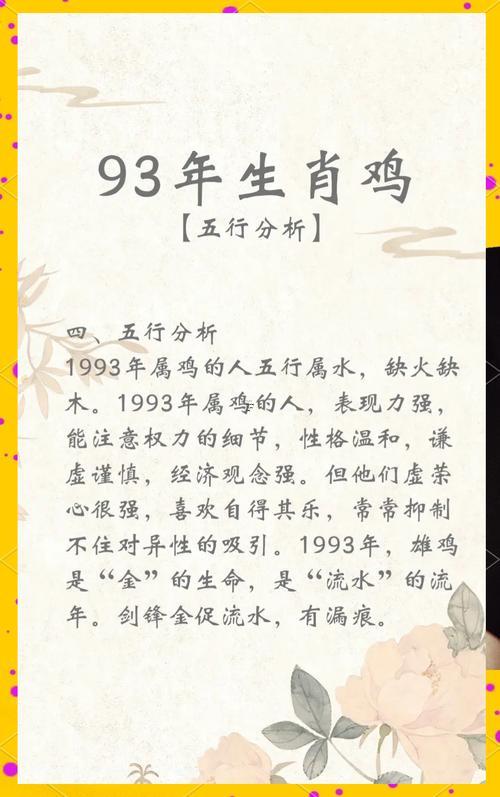 93年生肖鸡
【五行分析】
四、五行分析
1993年属鸡的人五行属水，缺火缺
木。1993年属鸡的人，表现力强，
能注意权力的细节，性格温和，谦
虚谨慎，经济观念强。但他们虚荣
心很强，喜欢自得其乐，常常抑制
不住对异性的吸引。1993年，雄鸡
是“金”的生命，是“流水”的流
年。剑锋金促流水，有漏痕。